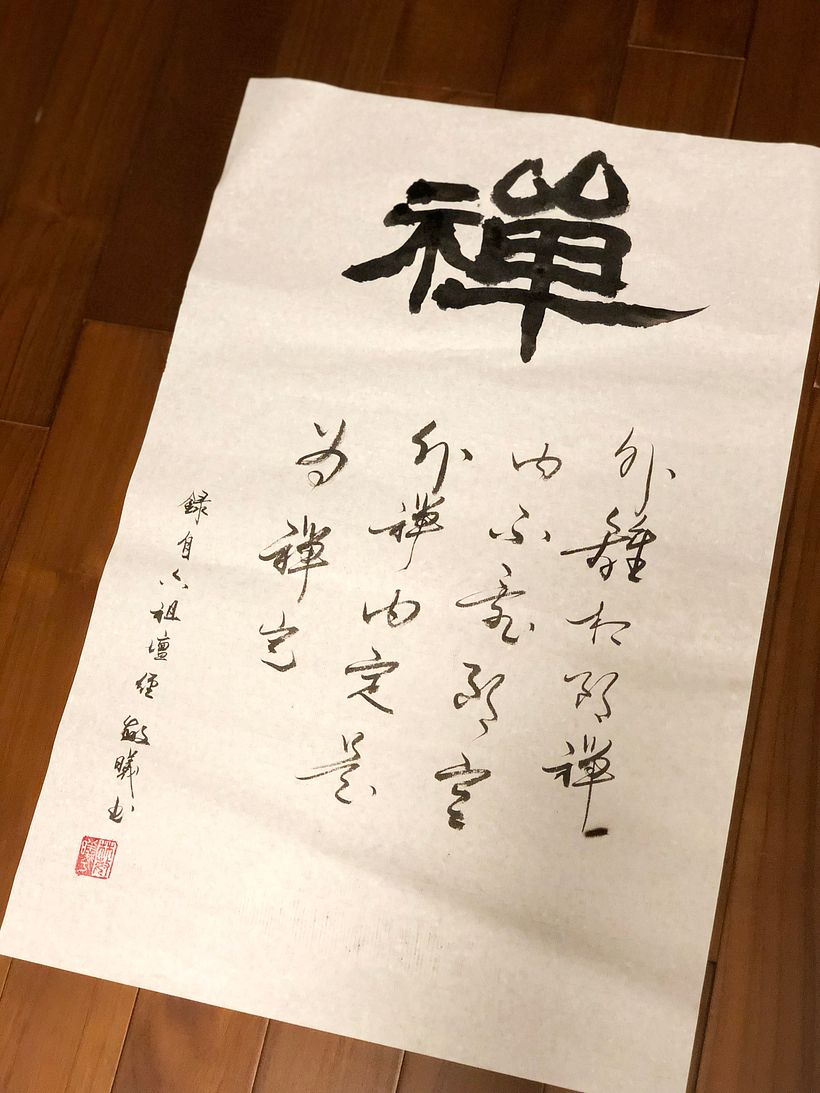 禪
外離相即禪
內不亂即定
外禪內定是
為禪定
錄自六祖壇經 曦書